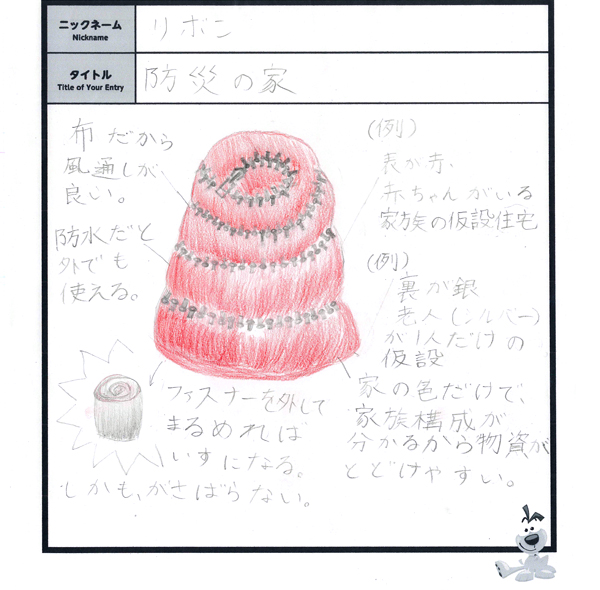 ニックネーム
Nickname
リボン
タイトル
Title of Your Entry
防災の家
布だから
風通しが
良い。
防水だと
外でも
使える。
(例)
表が赤、
赤ちゃんがいる
家族の仮設住宅
(例)
裏が銀
老人(シルバー)
が1人だけの
仮設
ファスナーを外して
まるめれば
いすになる。
しかも、がさばらない。
家の色だけで、
家族構成が
分かるから物資が
とどけやすい。